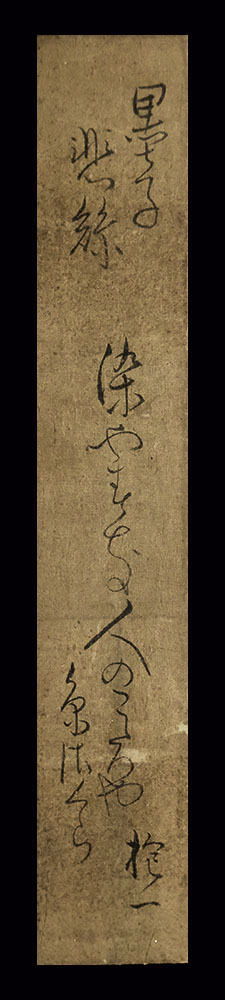 墨子
悲絲
染やすき人のこゝろや
糸ざくら
抱一